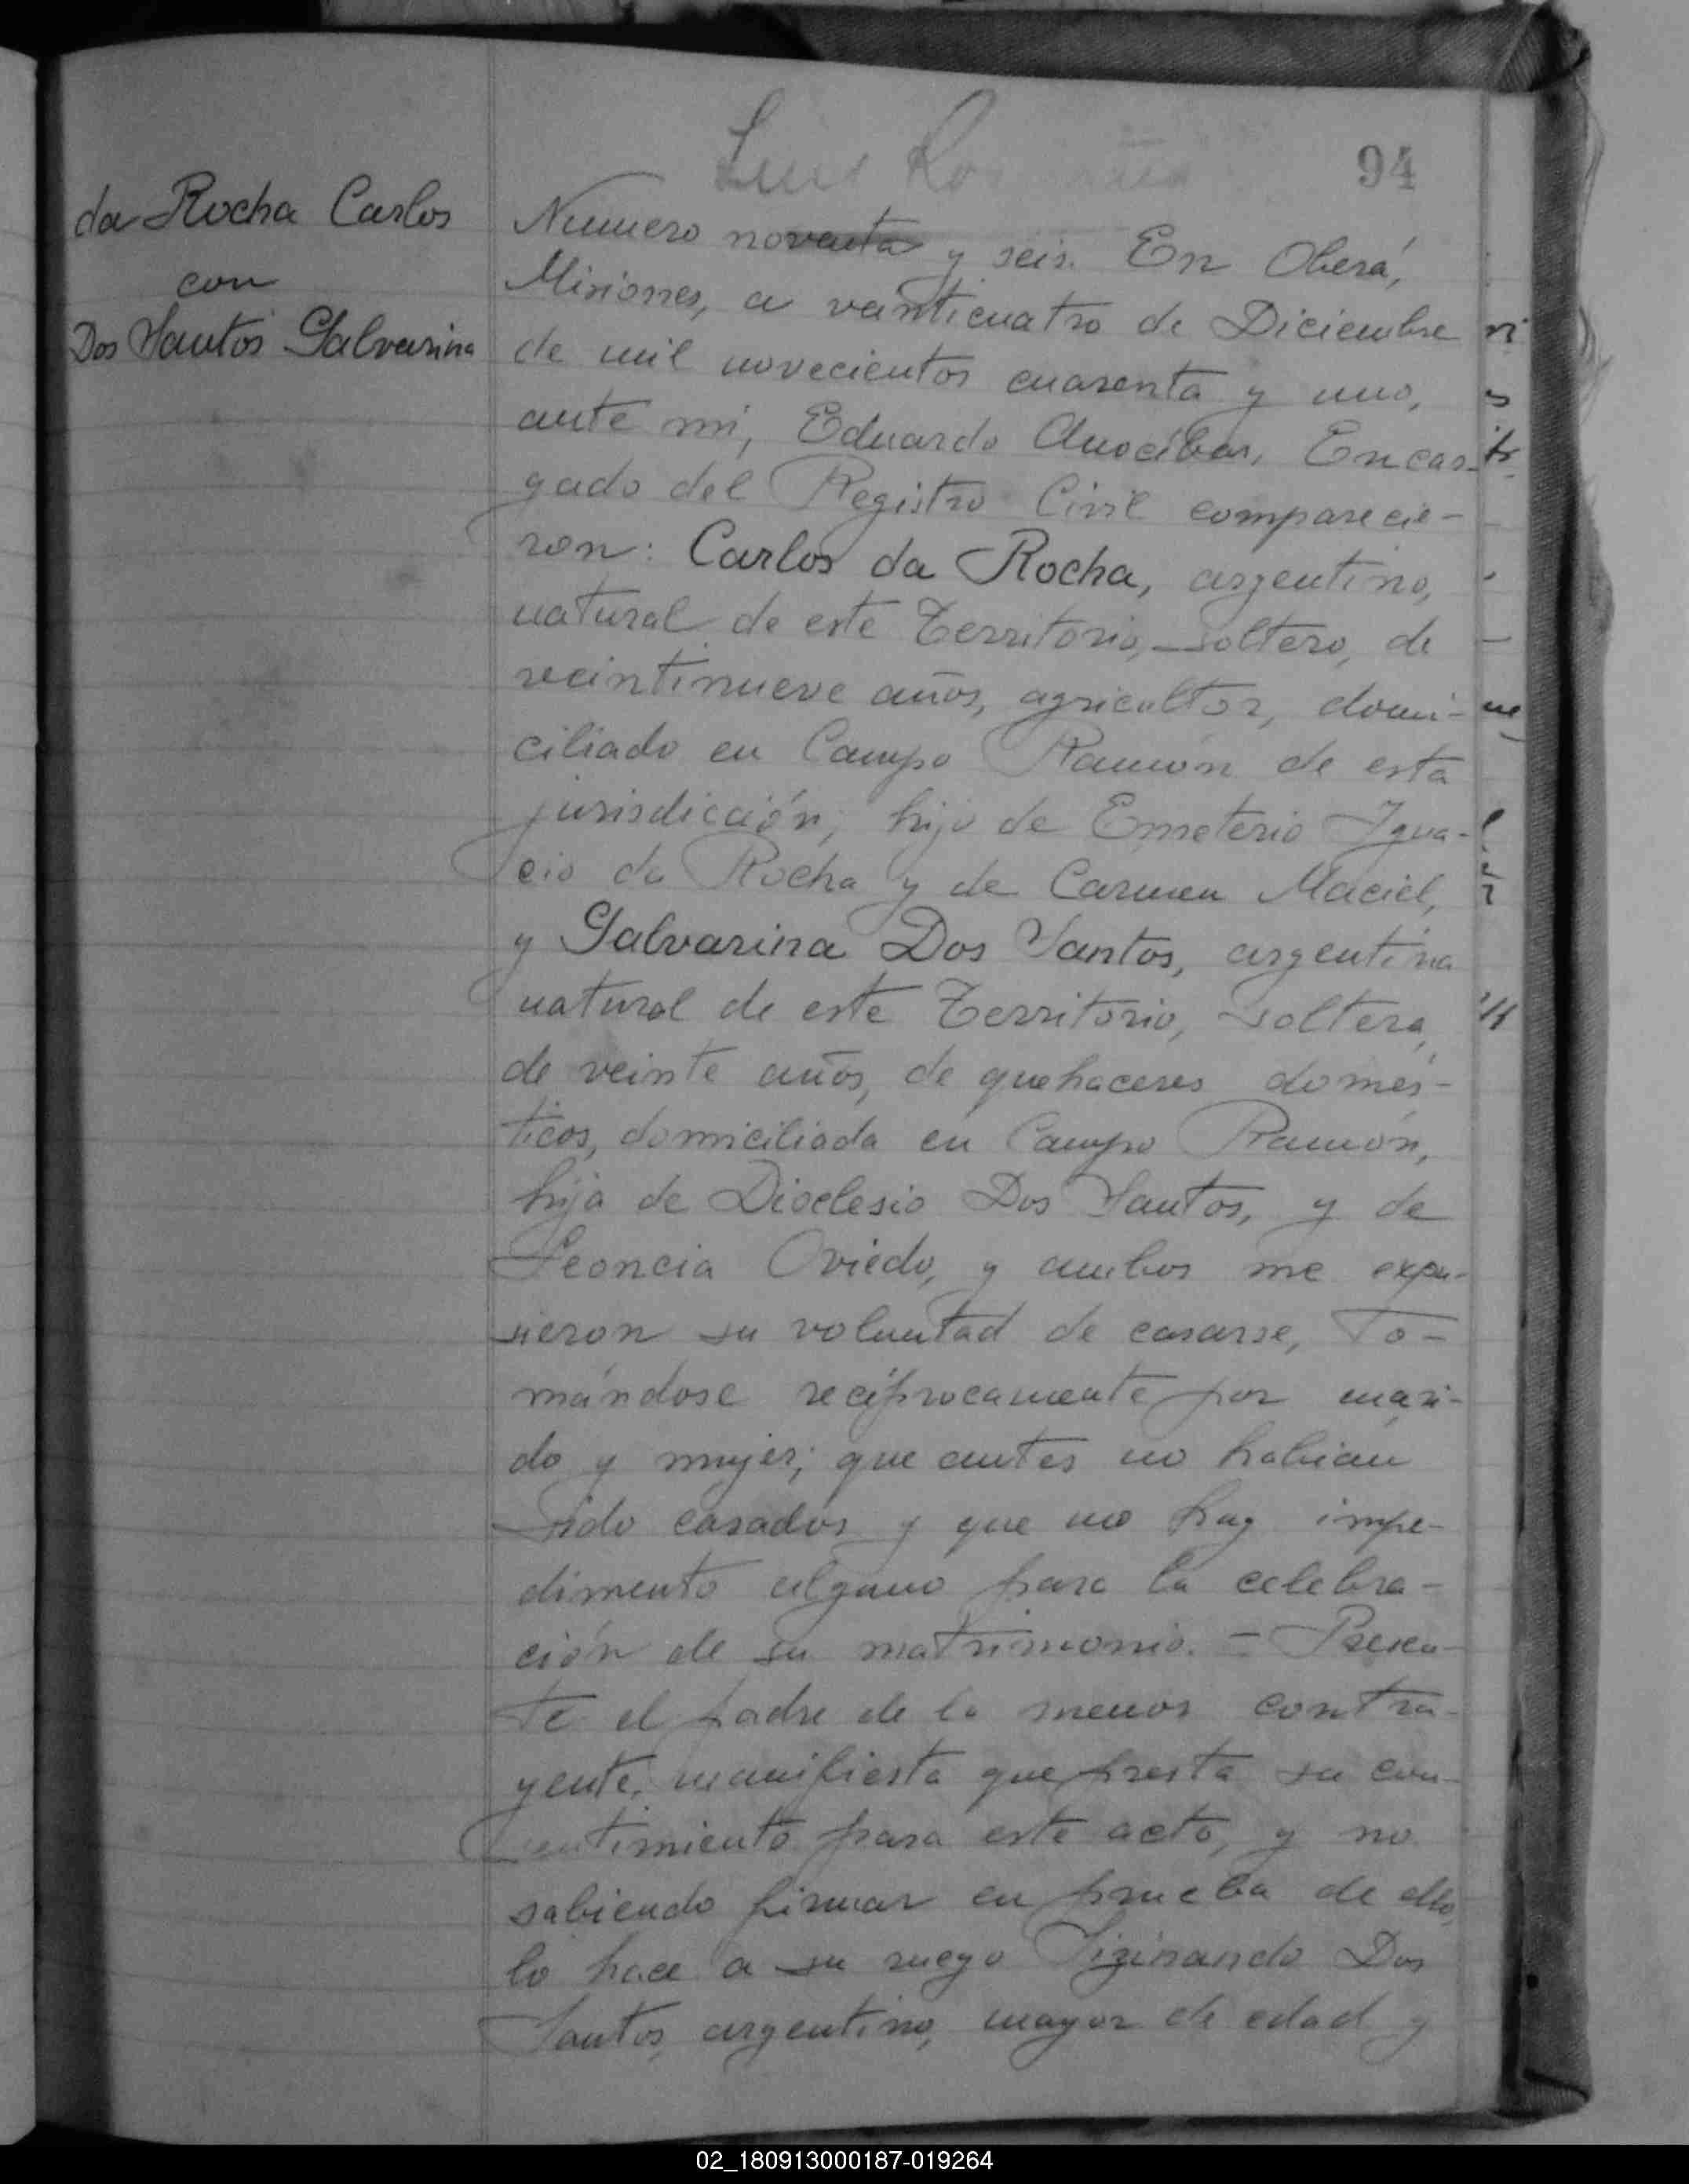 94
da Rocha Carlos
con
Dos Santos Galvarina
Numero noventa y seis. En Oberá,
Misiones, a veinticuatro de Diciembre
de mil novecientos cuarenta y uno,
ante mi, Eduardo Anocíbar, Encar-
gado del Registro Civil comparecie-
ron: Carlos da Rocha, argentino,
natural de este Territorio, soltero, de
veintinueve años, agricultor, domi-
ciliado en Campo Ramón de esta
jurisdicción, hijo de Emeterio Igna-
cio da Rocha y de Carmen Maciel,
y Galvarina Dos Santos, argentina
natural de este Territorio, soltera,
de veinte años, de quehaceres domés-
ticos, domiciliada en Campo Ramón,
hija de Dioclesio Dos Santos, y de
Leoncia Oviedo, y ambos me expu-
sieron su voluntad de casarse, to-
mándose recíprocamente por mari-
do y mujer; que antes no habian
sido casados y que no hay impe-
dimento alguno para la celebra-
ción de su matrimonio. = Presen-
te el padre de la menor contra-
yente, manifiesta que presta su con-
sentimiento para este acto, y no
sabiendo firmar en prueba de ello,
lo hace a su ruego Sizinando Dos
Santos, argentino, mayor de edad y
02_180913000187-019264